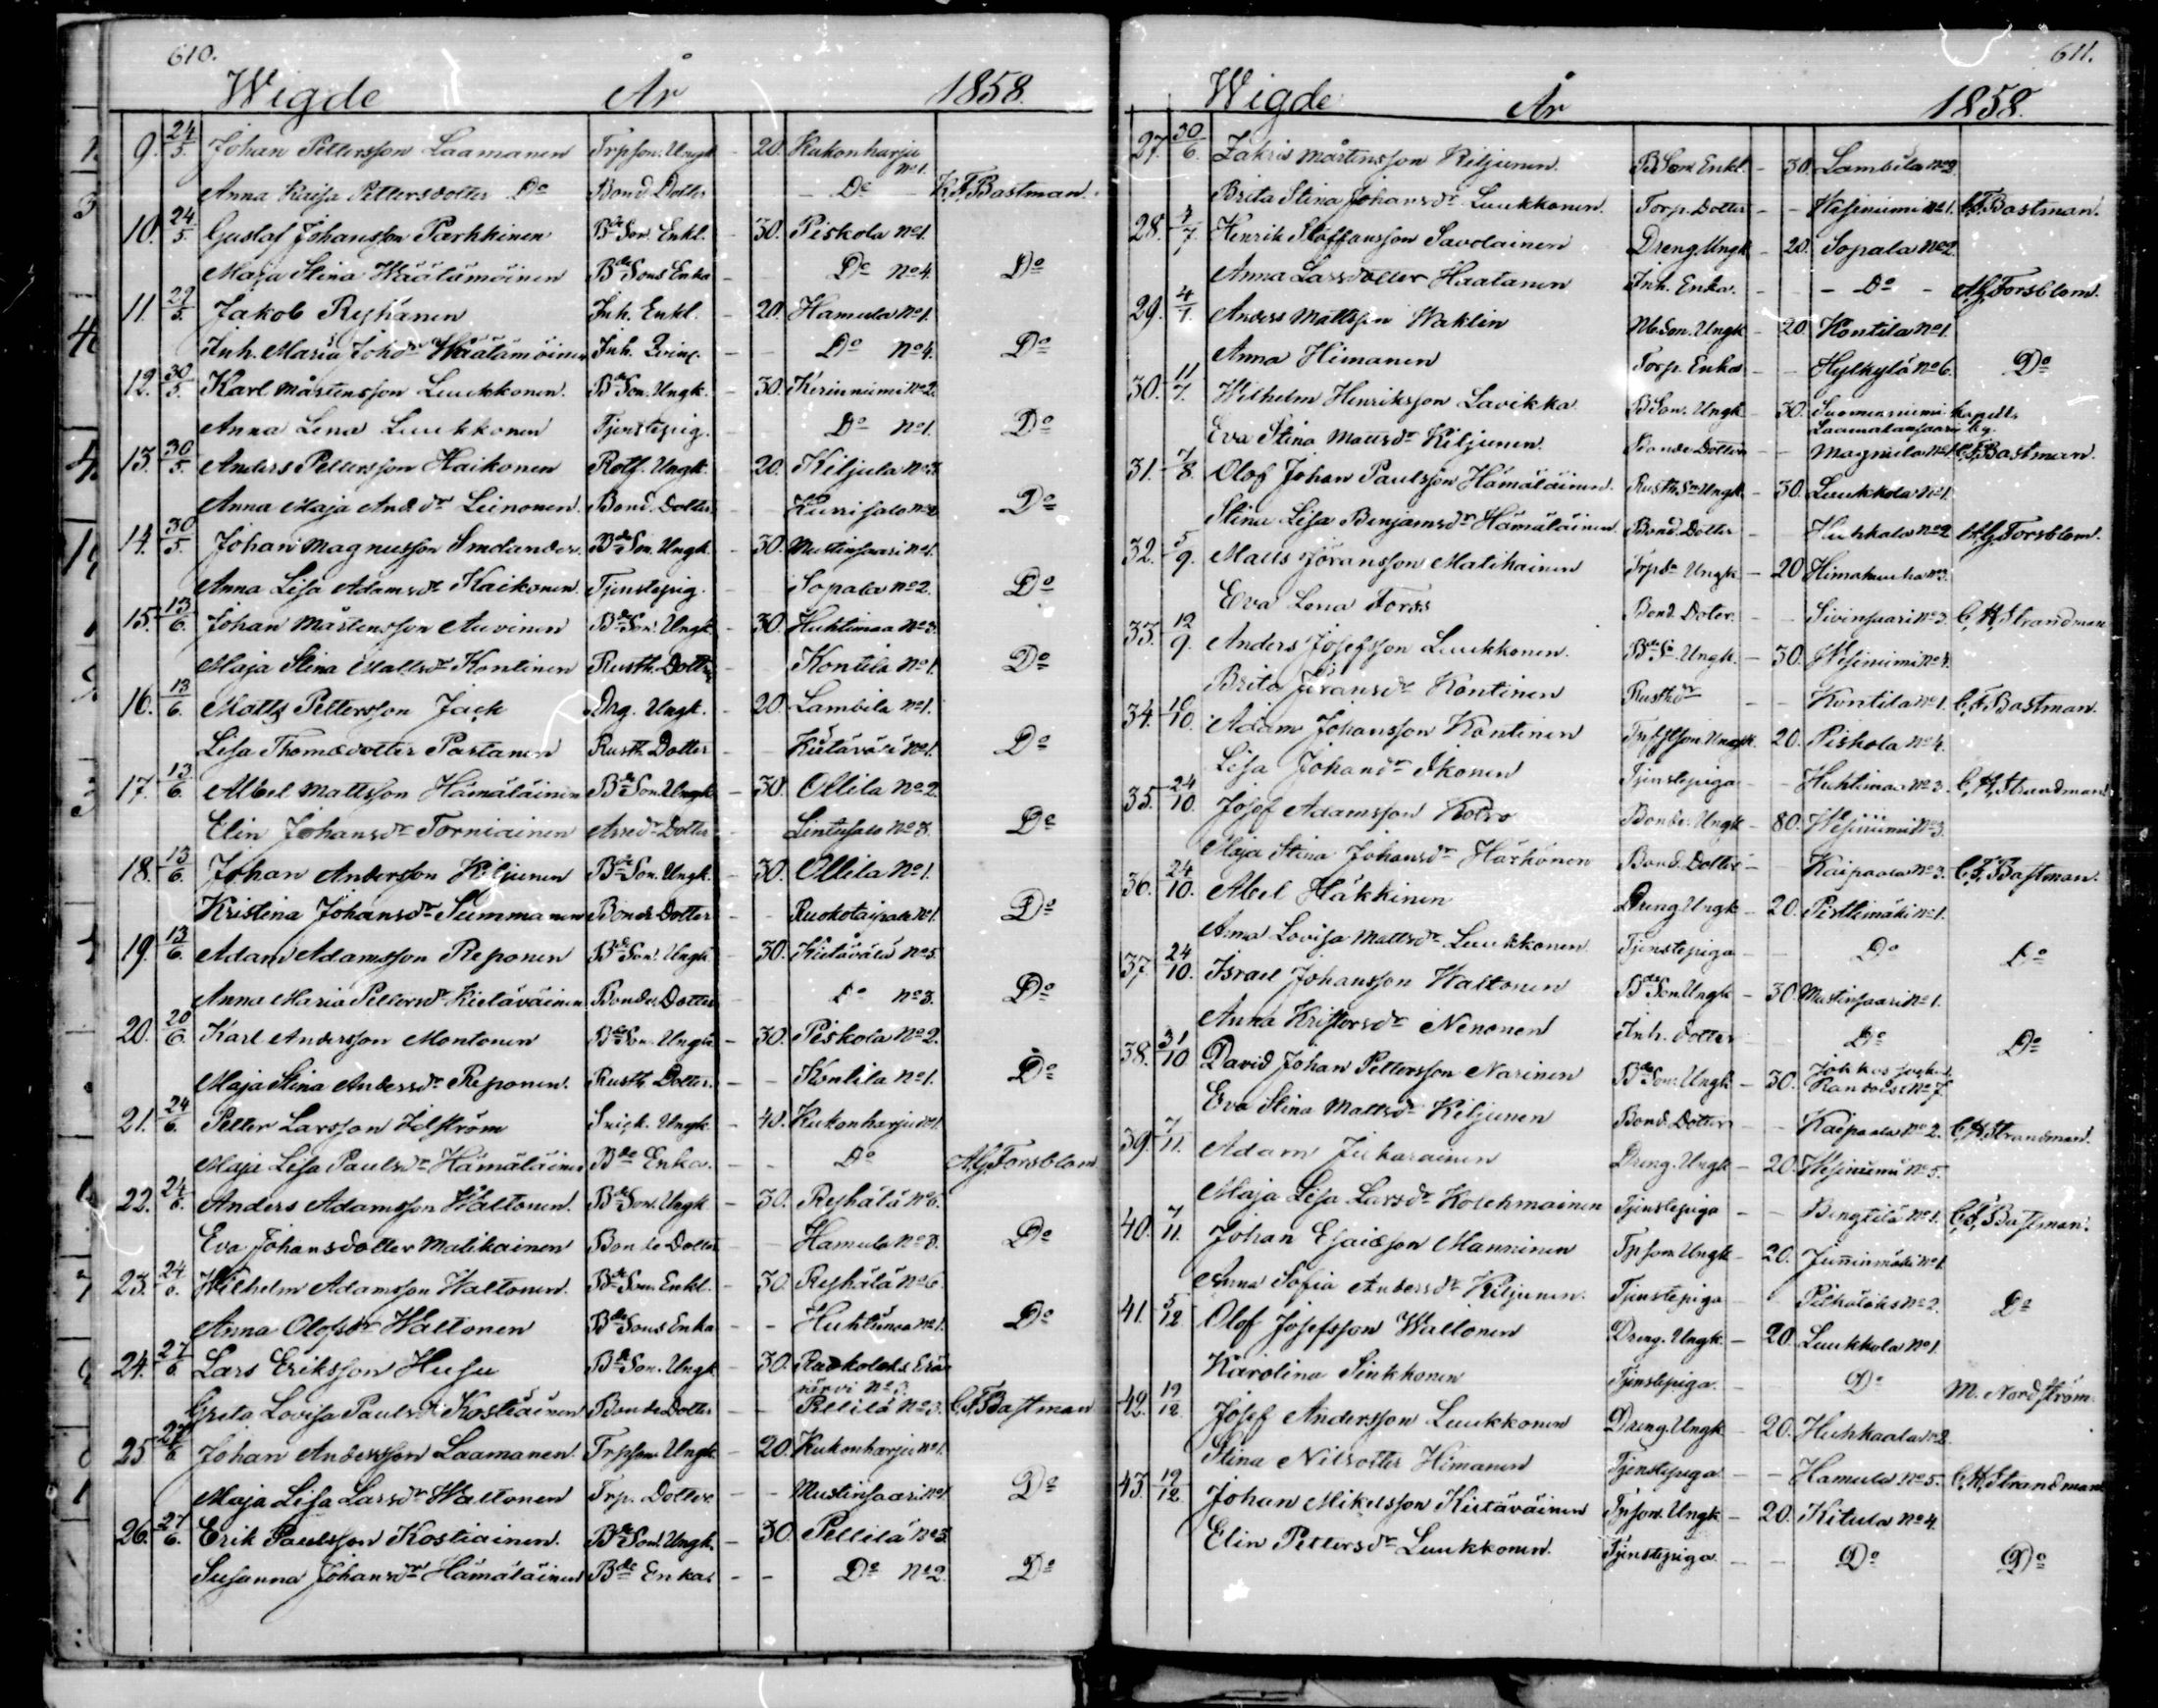 610.
Wigde År 1858.
9. 24/5. Johan Pettersson Laamanen Trpson. Ungk - 20. Kukonharju No1.
Anna Kaisa Pettersdotter Do Bond. Dotter - Do - K.F.Bastman.
10. 24/5. Gustaf Johansson Parkkinen Bde Son. Enkl. - 30. Piskola No1.
Maja Stina Wäätämöinen Bde Sons Enka - Do No4. Do
11. 29/5. Jakob Ryhänen Inh. Enkl. - 20. Hamula No1.
Inh. Maria Johdr Wäätämöinen Inh. - - Do No4. Do
12. 30/5. Karl Mårtensson Luukkonen. Bde Son. Ungk. - 30. Kiriuniemi No2.
Anna Lena Luukkonen Tjenstepig. - Do No1. Do
13. 30/5. Anders Pettersson Haikonen Rotf. Ungk. - 20. Kiljula No3.
Anna Maja Andr dr Leinonen. Bond. Dotter. Kurisalo No2. Do
14. 30/5. Johan Magnusson Smolander. Bde Son. Ungk. - 30. Mustinsaari No1.
Anna Lisa Adamsdr Kaikonen Tjenstepig. - Sopala No2. Do
15. 13/6. Johan Mårtensson Auvinen Bde Son. Ungk. - 30. Huhtimaa No3.
Maja Stina Mattsdr Kontinen Rusth. Dotter - Kontila No1. Do
16. 13/6. Matts Pettersson Jack Drg. Ungk. - 20. Lambila No1.
Lisa Thomasdotter Partanen Rusth Dotter - Kiitävälä No1. Do
17. 13/6. Abel Mattsson Hämäläinen Bde Son Ungk - 30. Ollila No2.
Elin Johansdr Torniainen Arredr Dotter - Lintusalo No3. Do
18. 13/6. Johan Andersson Kiljunen Bde Son. Ungk. - 30. Ollila No1.
Kristina Johansdr Summanen Bonde Dotter - Ruokotaipale No1. Do
19. 13/6. Adam Adamsson Reponen Bde Son. Ungk - 30. Kiitävälä No5.
Anna Maria Pettersdr Kietäväinen Bonde. Dotter Do No3. Do
20. 20/6. Karl Andersson Montonen Bde Son. Ungk - 30. Piskola No2.
Maja Stina Andersdr Reponen. Rusth Dotter. - - Kontila No1. Do
21. 24/6. Petter Larsson Idström Snick. Ungk. - 40. Kukonharju No1.
Maja Lisa Paulsdr Hämäläinen Bde Enka. - - Do A.G.Forsblom
22. 24/6. Anders Adamsson Waltonen. Bde Son. Ungk - 30. Ryhälä No6.
Eva Johansdotter Matikainen Bonde Dotter - Hamula No8. Do
23. 24/6. Wilhelm Adamsson Waltonen. Bde Son. Enkl. - 30. Ryhälä No6.
Anna Olofsdr Waltonen Bde Sons Enka - - Huhtimaa No1. Do
24. 27/6. Lars Eriksson Husu Bde Son. Ungk - 30. Ruokolaks Erä
järvi No
Greta Lovisa Paulsdr Kostiainen Bonde Dotter - - Pellilä No3. C.F.Bastman
25 27/6 Johan Andersson Laamanen. Trpson. Ungk - 20. Kukonharju No1.
Maja Lisa Larsdr Waltonen Trp. Dotter - - Mustinsaari No1. Do
26. 27/6. Erik Paulsson Kostiainen. Bde Son. Ungk. - 30. Pellilä No3.
Susanna Johansdr Hämäläinen Bde Enka - - Do No2. Do
611.
Wigde År 1858.
27. 30/6. Zakris Mårtensson Kiljunen. B Son. Enkl. - 30. Lambila No2.
Brita Stina Johansdr Luukkonen. Torp. Dotter - - Wesiniemi No1. C.F.Bastman.
28. 4/7. Henrik Staffansson Savolainen Dreng. Ungk - 20. Sopala No2.
Anna Larsdotter Haatanen Inh. Enka. - - Do - A.G.Forsblom.
29. 4/7. Anders Mattsson Waklin Nb.Son. Ungk - 20. Kontila No1.
Anna Himanen Torp. Enka - - Hylkylä No6. Do
30. 11/7. Wilhelm Henriksson Lavikka B Son. Ungk - 30. Suomenniemi
Laamalansaari by.
Eva Stina Mattsdr Kiljunen. Bonde Dotter - - Magnula No1. C.F.Bastman.
31. 7/8. Olof Johan Paulsson Hämäläinen. Rusth. Sn Ungk - 30. Luukkola No1.
Stina Lisa Benjamsdr Hämäläinen Bond. Dotter - Huhkala No2. A.G.Forsblom.
32. 5/9. Matts Jöransson Matikainen Trpdr Ungk - 20 Himahuuha No3.
Eva Lena Forss Bond. Doter. - - Sivinsaari No2. C.H.Strandman
33. 12/9. Anders Josefsson Luukkonen. Bde S. Ungk. - 30. Wesiniemi No4.
Brita Jöransdr Kontinen Rusthdr - - Kontila No1. C.F.Bastman.
34. 10/10. Adam Johansson Kontinen Ungk. 20. Piskola No4.
Lisa Johansdr Ikonen Tjenstepiga - - Huhtimaa No3. C.H.Strandman
35. 24/10. Josef Adamsson Kolvo Bonde. Ungk - 80. Wesiniemi No3.
Maja Stina Johansdr Härkönen Bond. Dotter - Kaipaala No3. C.F.Bastman.
36. 24/10. Abel Häkkinen Dreng Ungk - 20. Pistlimäki No1.
Anna Lovisa Mattsdr Luukkonen. Tjenstepiga - - Do Do
37 24/10. Israel Johansson Waltonen Bde Son Ungk - 30. Mustinsaari No1.
Anna Kristersdr Nenonen Inh. Dotter - Do Do
38. 31/10 David Johan Pettersson Narinen Bde Son. Ungk - 30.
No7.
Eva Stina Mattsdr Kiljunen Bond. Dotter - - Kaipaala No2. C.H.Strandman.
39. 7/11. Adam Jukarainen Dreng. Ungk - 20. Wesiniemi No5.
Maja Lisa Larsdr Kolehmainen Tjenstepiga - - Bengtilä No1. C.F.Bastman.
40. 7/11. Johan Esaiasson Manninen Trpson. Ungk - 20. Junninmäki No1.
Anna Sofia Andersdr Kiljunen. Tjenstepiga - Pitkälaks No2. Do
41. 5/12 Olof Josefsson Waltonen Dreng. Ungk. - 20. Luukkola No1.
Karolina Sinkkonen Tjenstepiga. - - Do M. Nordström.
42. 12/12. Josef Andersson Luukkonen Dreng. Ungk - 20. Huhkaala No2.
Stina Nilsdotter Himanen Tjenstepiga - - Hamula No5. C.H.Strandman
43. 12/12. Johan Mikelsson Kietäväinen Trpson. Ungk - 20. Kitula No4.
Elin Pettersdr Luukkonen. Tjenstepiga. - - Do Do